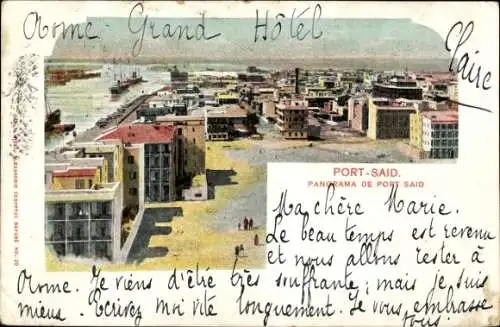 Rome Grand Hôtel
Claire
PORT-SAID.
PANORAMA DE PORT SAID
Ma chère Marie.
Le beau temps est revenu
et nous allons rester à
Rome. Je viens d'être très souffrante; mais je suis
mieux. Ecrivez moi vite longuement. Je vous embrasse
tous.